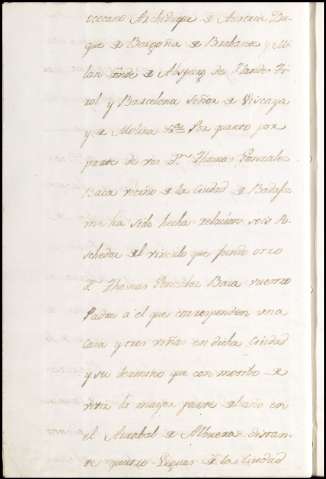 occeano Archiduque de Austria Du-
que de Borgoña de Brabante y Mi-
lan Conde de Abspurg de Flandes Ti-
rol y Barcelona Señor de Vizcaya
y de Molina &a Por quanto por
parte de vos Dn Thomas Gonzalez
Baca vecino de la Ciudad de Badajoz
me ha sido hecha relacion sois Po-
sehedor del vinculo que fundo otro
Dn Thomas Gonzalez Baca vuestro
Padre a el que corresponden una
casa y tres viñas en dicha Ciudad
y su termino que con motibo de
vivir la mayor parte del año en
el Arrabal de Albuera distan-
te quatro Leguas de la Ciudad